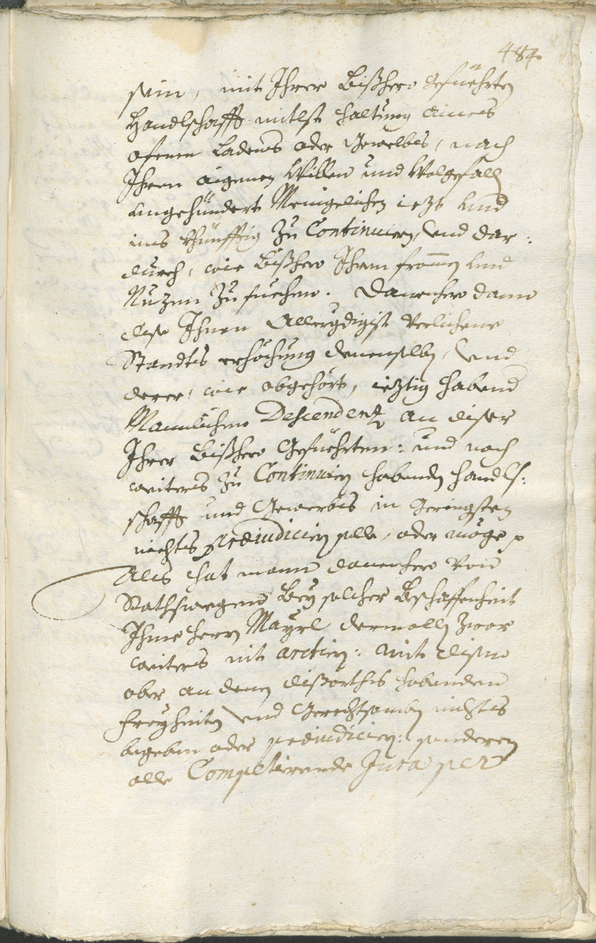 484
sein, mit Ihrer bißhero gefüehrten
Handlschafft mitlst haltung aines
ofenen Ladens oder Gewelbes, nach
Ihrem aigenen Willen und Wolgefallen
ungehindert Menigelichen iezt und
ins künfftig zu Continuieren, und dar:
durch, wie bißhero Ihren frommen und
Nuzen zu suechen. Danenhero dann
dise Ihnen Allergdigist verlichene
Standts erhöchung denenselben, und
deren, wie obgehört, ieztig habend
Mannlichen Descendenten an diser
Ihrer bißhero gefüehrten: und noch
weiters zu Continuiren habenden Handl:
schafft und Gewerbs in geringsten
nichts praeiudiciren solle, oder möge p
Als hat mann danenhero von
Rathswegen bey solcher Beschaffenheit
Ihme Herrn Mayrl dermallen zwar
weiters nit arctiren: mit disem
aber an denen dißorths habenden
Freyheiten und Gerechtsamben nichts
begeben oder praeiudiciren: sonderen
alle Competirende Jura per